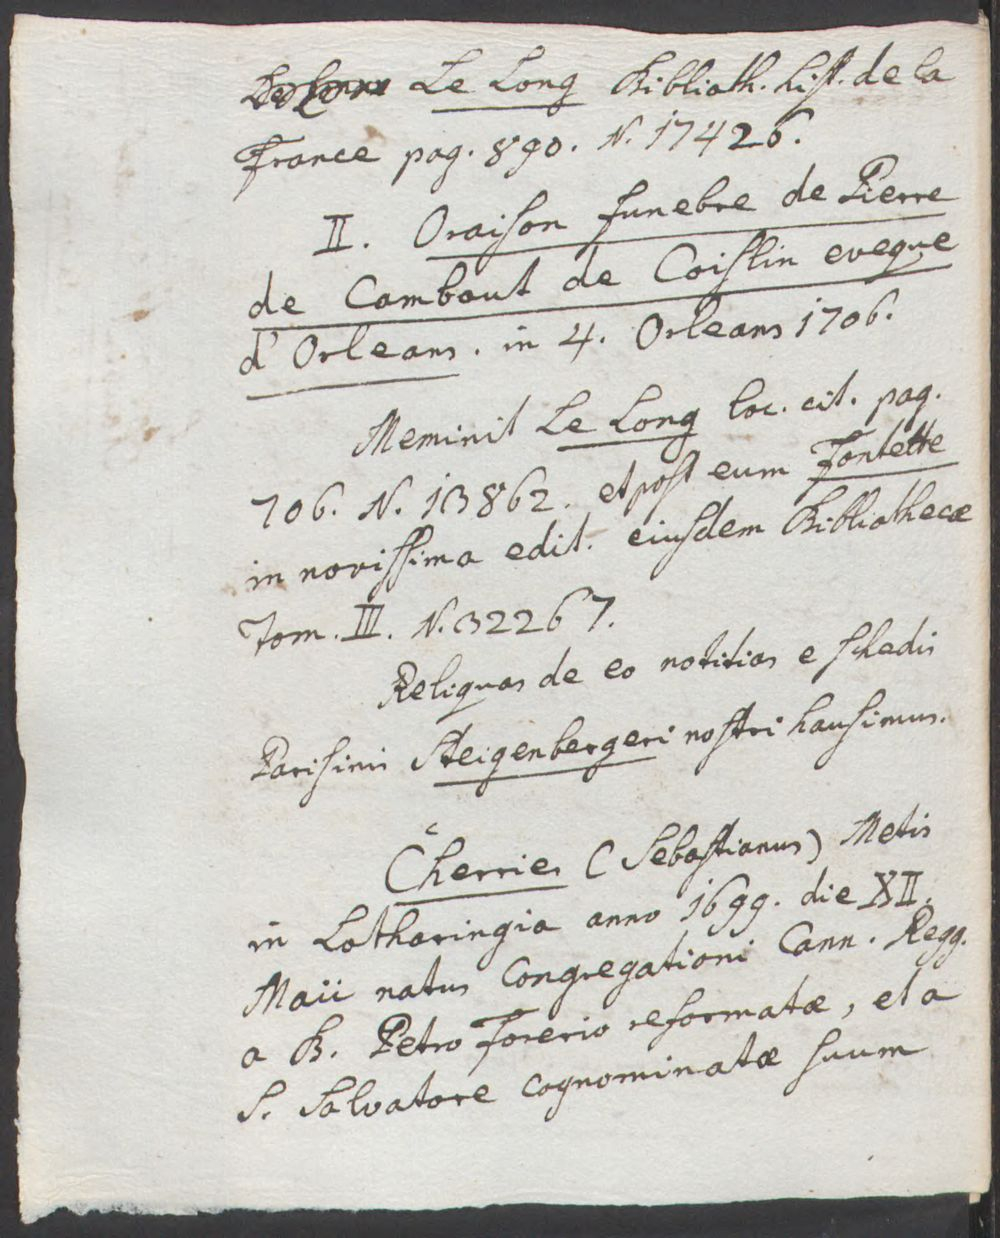 Le Long Biblioth. hist. de la
France pag. 890. N. 17426.
II. Oraison funebre de Pierre
de Cambout de Coislin eveque
d'Orleans. in 4. Orleans 1706.
Meminit Le Long loc. cit. pag.
706. N. 13862. et post eum Fontette
in novissima edit. eiusdem Bibliothecæ
Tom. III. N. 32267.
Reliquas de eo notitias e schedis
Parisinis Steigenbergeri nostri hausimus.
Cherrier (Sebastianus) Metis
in Lotharingia anno 1699. die XII.
Maii natus Congregationi Cann. Regg.
a B. Petro Forerio reformatæ, et a
S. Salvatore cognominatæ suum